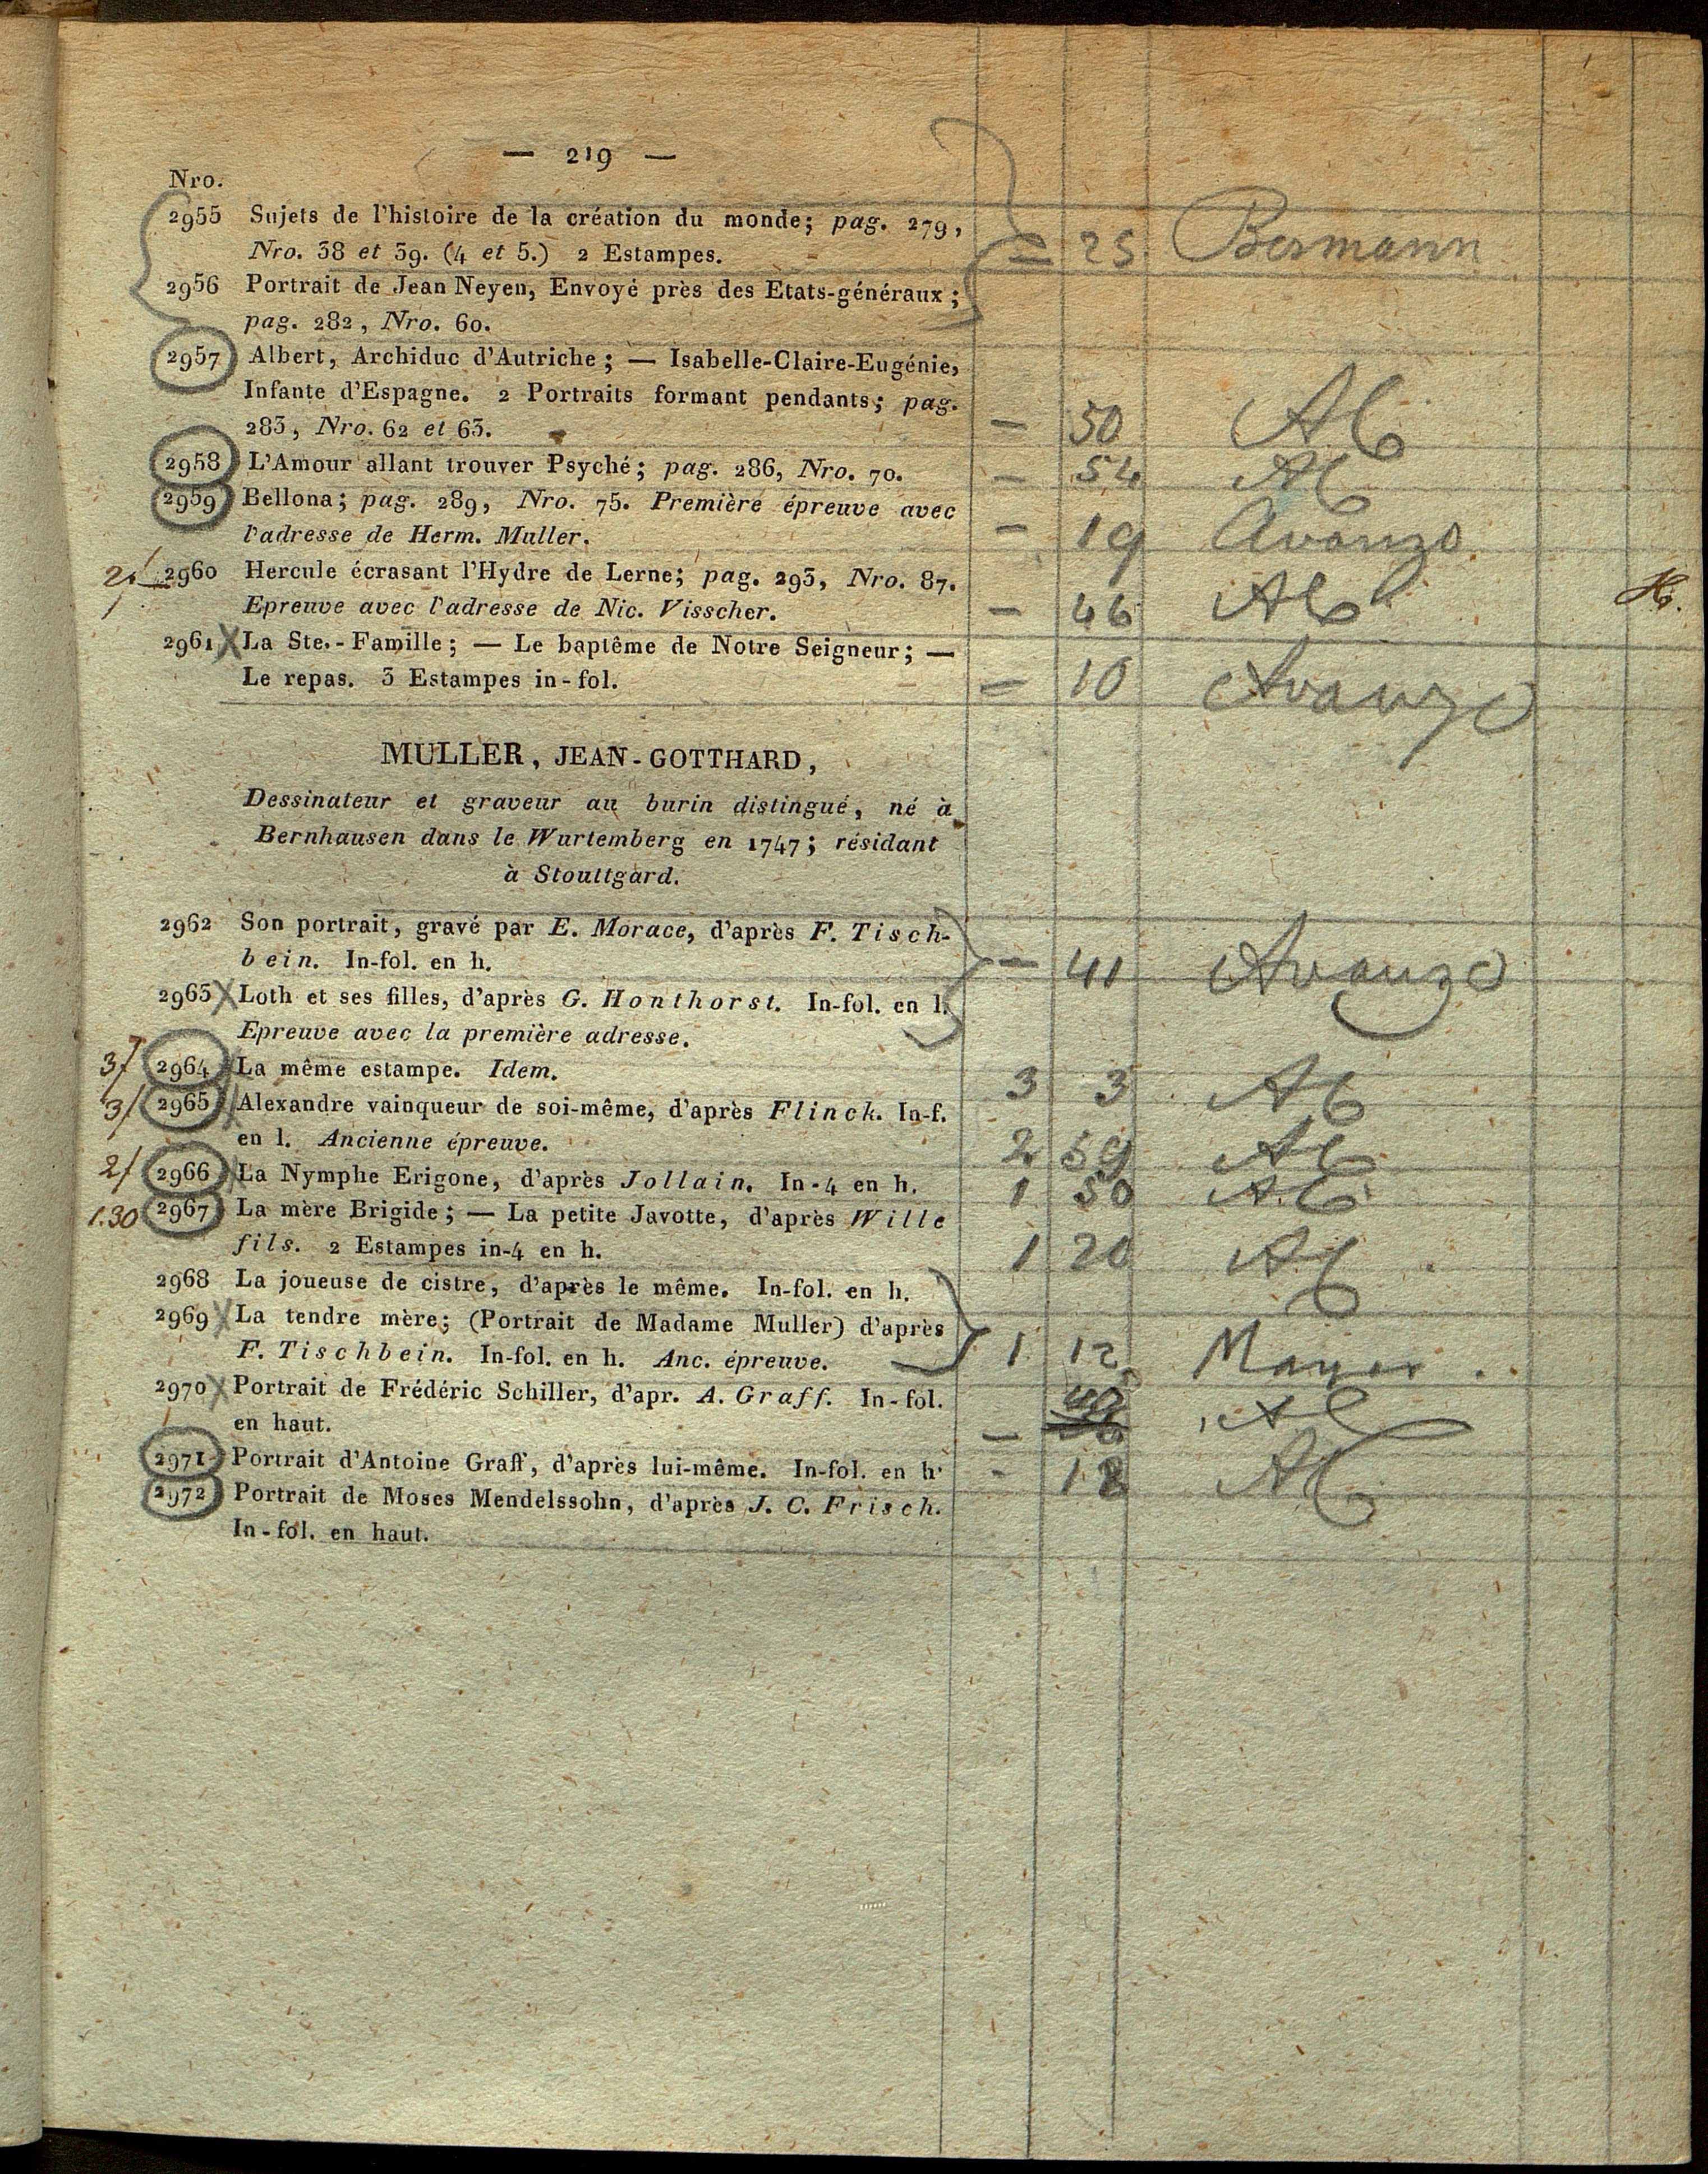 — 219 —
Nro.
2955 Sujets de l'histoire de la création du monde; pag. 279,
Nro. 38 et 39. (4 et 5.) 2 Estampes. = 25 Bermann
2956 Portrait de Jean Neyen, Envoyé près des Etats-généraux;
pag. 282, Nro. 60.
2957 Albert, Archiduc d'Autriche; — Isabelle-Claire-Eugénie,
Infante d'Espagne. 2 Portraits formant pendants; pag.
283, Nro. 62 et 63. — 50
2958 L'Amour allant trouver Psyché; pag. 286, Nro. 70. — 54
2959 Bellona; pag. 289, Nro. 75. Première épreuve avec
l'adresse de Herm. Muller. — 19 Avanzo
2960 Hercule écrasant l'Hydre de Lerne; pag. 293, Nro. 87.
Epreuve avec l'adresse de Nic. Visscher. — 46
2961 X La Ste.-Famille; — Le baptême de Notre Seigneur; —
Le repas. 3 Estampes in-fol. = 10 Avanzo
MULLER, JEAN-GOTTHARD,
Dessinateur et graveur au burin distingué, né à
Bernhausen dans le Wurtemberg en 1747; résidant
à Stouttgard.
2962 Son portrait, gravé par E. Morace, d'après F. Tisch-
bein. In-fol. en h. — 41 Avanzo
2963 X Loth et ses filles, d'après G. Honthorst. In-fol. en l.
Epreuve avec la première adresse.
3/ 2964 La même estampe. Idem. 3 3
3/ 2965 Alexandre vainqueur de soi-même, d'après Flinck. In-f.
en l. Ancienne épreuve. 2 59
2/ 2966 La Nymphe Erigone, d'après Jollain. In-4 en h. 1 50
1.30 2967 La mère Brigide; — La petite Javotte, d'après Wille
fils. 2 Estampes in-4 en h. 1 20
2968 La joueuse de cistre, d'après le même. In-fol. en h.
2969 X La tendre mère; (Portrait de Madame Muller) d'après
F. Tischbein. In-fol. en h. Anc. épreuve. 1 12
2970 X Portrait de Frédéric Schiller, d'apr. A. Graff. In-fol.
en haut. —
2971 Portrait d'Antoine Graff, d'après lui-même. In-fol. en h. - 18
2972 Portrait de Moses Mendelssohn, d'après J. C. Frisch.
In-fol. en haut.